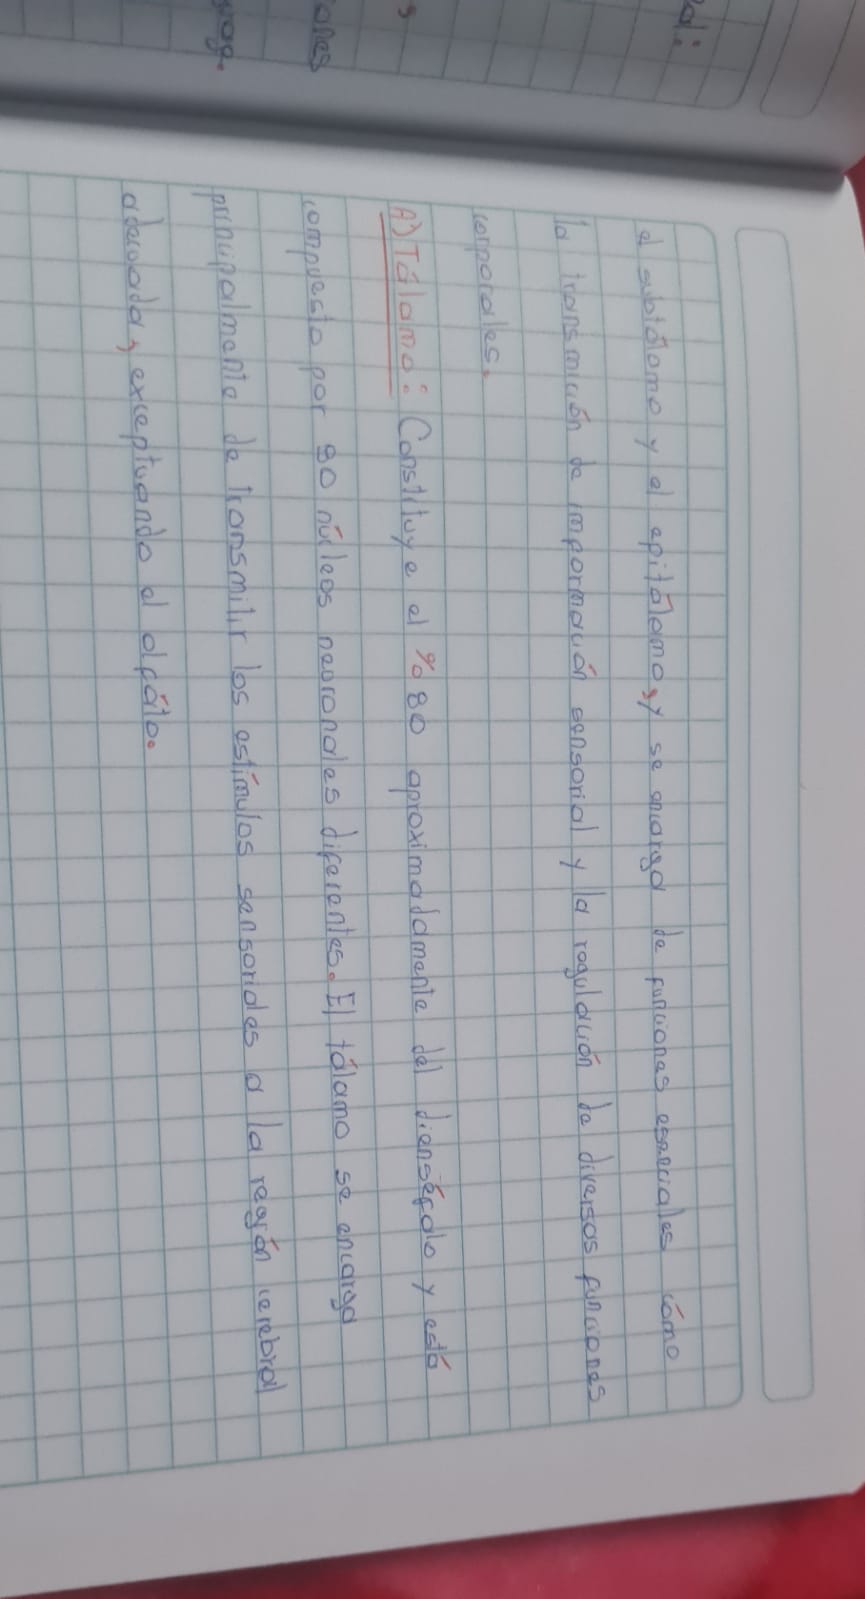 el subtálamo y el epitálamo, y se encarga de funciones esenciales cómo
la transmición de imformación sensorial y la regulación de diversas funciones
corporales.
A) Tálamo: Constituye el %80 aproximadamente del diensefalo y está
compuesto por 80 núcleos neuronales diferentes. El tálamo se encarga
principalmente de transmitir los estímulos sensoriales a la región cerebral
adecuada, exceptuando el olfato.